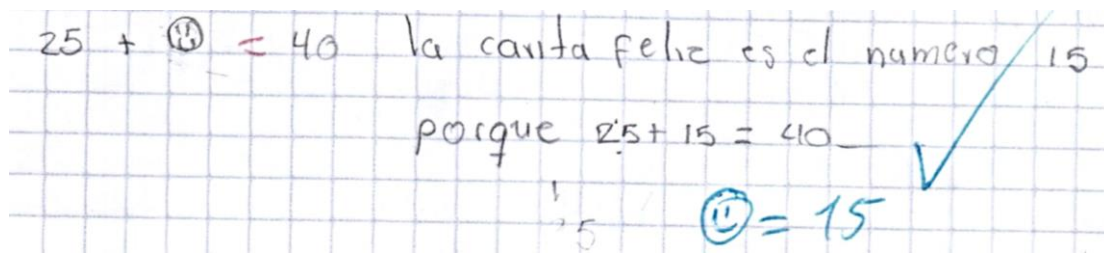 25 + ☺ = 40 la carita feliz es el numero 15
porque 25 + 15 = 40
5
☺ = 15